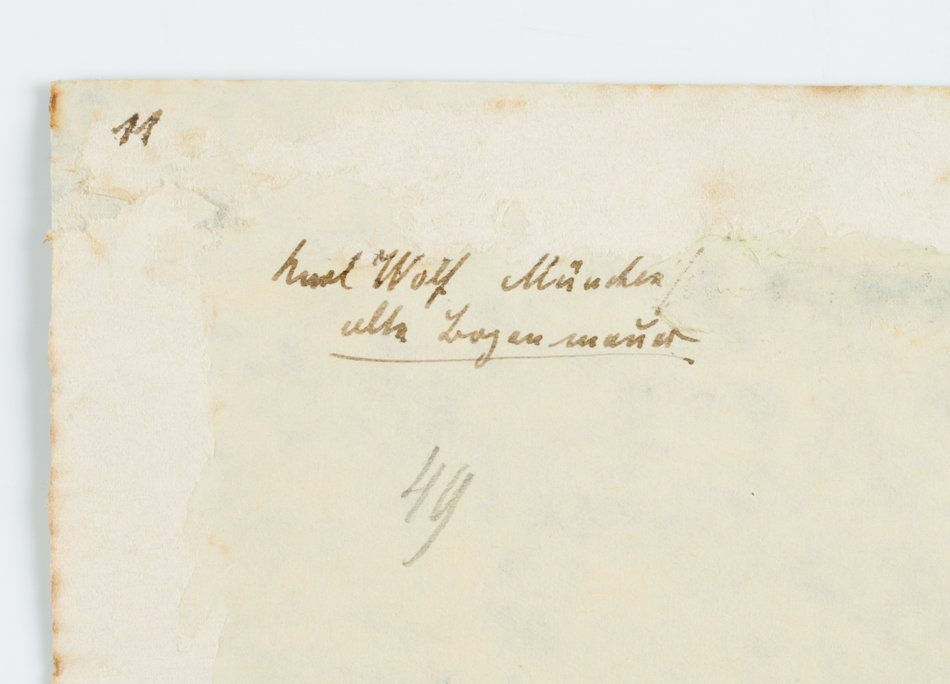 11
Karl Wolf München
alte Bogenmauer
49